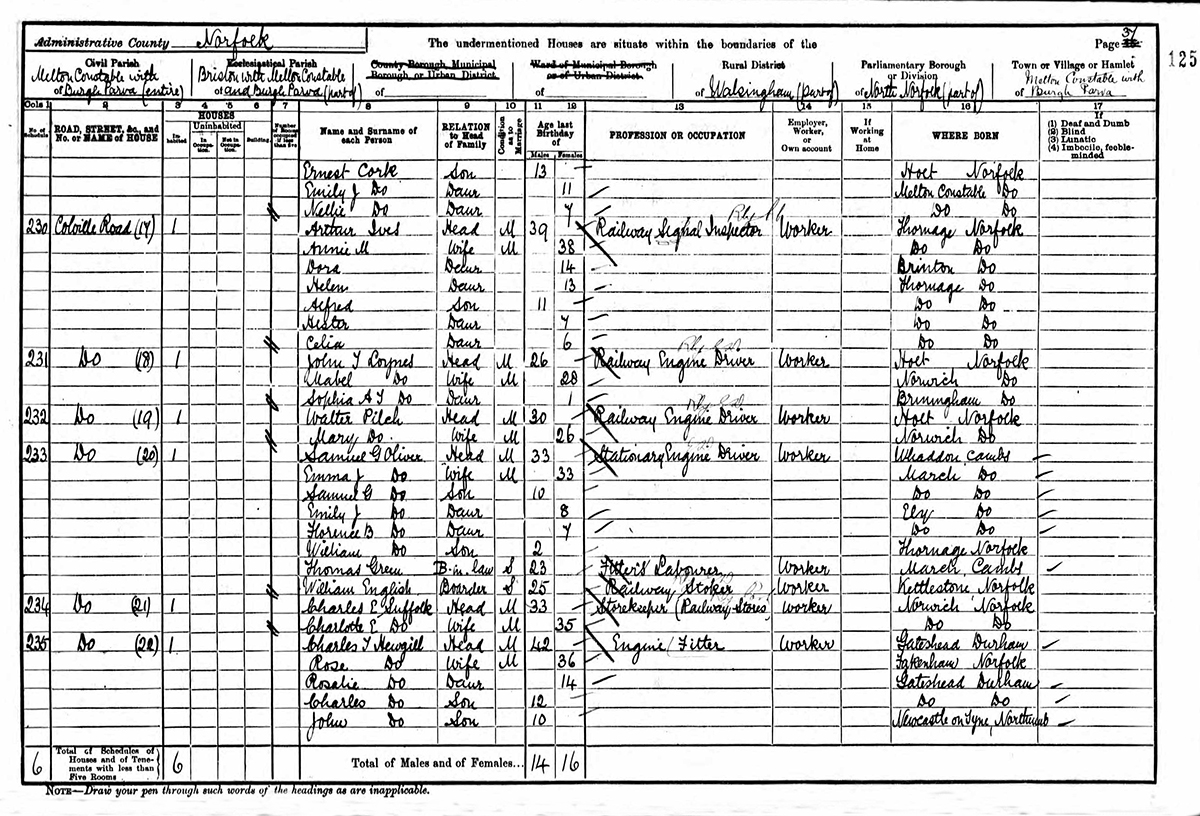 Administrative County Norfolk
The undermentioned Houses are situate within the boundaries of the
Page 37
125
Civil Parish
Ecclesiastical Parish
County Borough, Municipal Borough, or Urban District
Ward of Municipal Borough or of Urban District
Rural District
Parliamentary Borough or Division
Town or Village or Hamlet
Melton Constable with
of Burgh Parva (entire)
Briston with Melton Constable
of and Burgh Parva (part of)
of
of
of Walsingham (part of)
of North Norfolk (part of)
Melton Constable with
of Burgh Parva
Cols 1 2 3 4 5 6 7 8 9 10 11 12 13 14 15 16 17
No. of Schedule
ROAD, STREET, &c., and No. or NAME of HOUSE
HOUSES
Inhabited
Uninhabited
In Occupation.
Not in Occupation.
Building
Number of Rooms occupied if less than five
Name and Surname of each Person
RELATION to Head of Family
Condition as to Marriage
Age last Birthday of
Males Females
PROFESSION OR OCCUPATION
Employer, Worker, or Own account
If Working at Home
WHERE BORN
If
(1) Deaf and Dumb
(2) Blind
(3) Lunatic
(4) Imbecile, feeble-minded
Ernest Cork Son 13 Holt Norfolk
Emily J Do Daur 11 Melton Constable Do
Nellie Do Daur 7 Do Do
230 Colville Road (17) 1 Arthur Ives Head M 39 Railway Signal Inspector Worker Thornage Norfolk
Annie M Wife M 38 Do Do
Dora Daur 14 Brinton Do
Helen Daur 13 Thornage Do
Alfred Son 11 Do Do
Hester Daur 7 Do Do
Celia Daur 6 Do Do
231 Do (18) 1 John T Loynes Head M 26 Railway Engine Driver Worker Holt Norfolk
Mabel Do Wife M 28 Norwich Do
Sophia A T Do Daur 1 Briningham Do
232 Do (19) 1 Walter Pilch Head M 30 Railway Engine Driver Worker Holt Norfolk
Mary Do. Wife M 26 Norwich Do
233 Do (20) 1 Samuel G Oliver Head M 33 Stationary Engine Driver Worker Whaddon Cambs
Emma J Do Wife M 33 March Do
Samuel G Do Son 10 Do Do
Emily J Do Daur 8 Ely Do
Florence B Do Daur 7 Do Do
William Do Son 2 Thornage Norfolk
Thomas Green B-in-law S 23 Fitter's Labourer Worker March Cambs
William English Boarder S 25 Railway Stoker Worker Kettlestone Norfolk
234 Do (21) 1 Charles E Suffolk Head M 33 Storekeeper (Railway Stores) Worker Norwich Norfolk
Charlotte E Do Wife M 35 Do Do
235 Do (22) 1 Charles T Newgill Head M 42 Engine Fitter Worker Gateshead Durham
Rose Do Wife M 36 Fakenham Norfolk
Rosalie Do Daur 14 Gateshead Durham
Charles Do Son 12 Do Do
John Do Son 10 Newcastle on Tyne, Northumb
6 Total of Schedules of Houses and of Tenements with less than Five Rooms 6 Total of Males and of Females... 14 16
NOTE—Draw your pen through such words of the headings as are inapplicable.